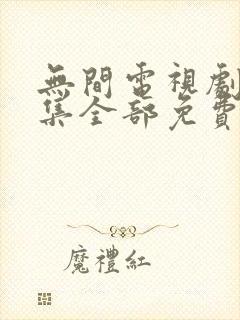 無間電視劇
集全部免費
魔禮紅